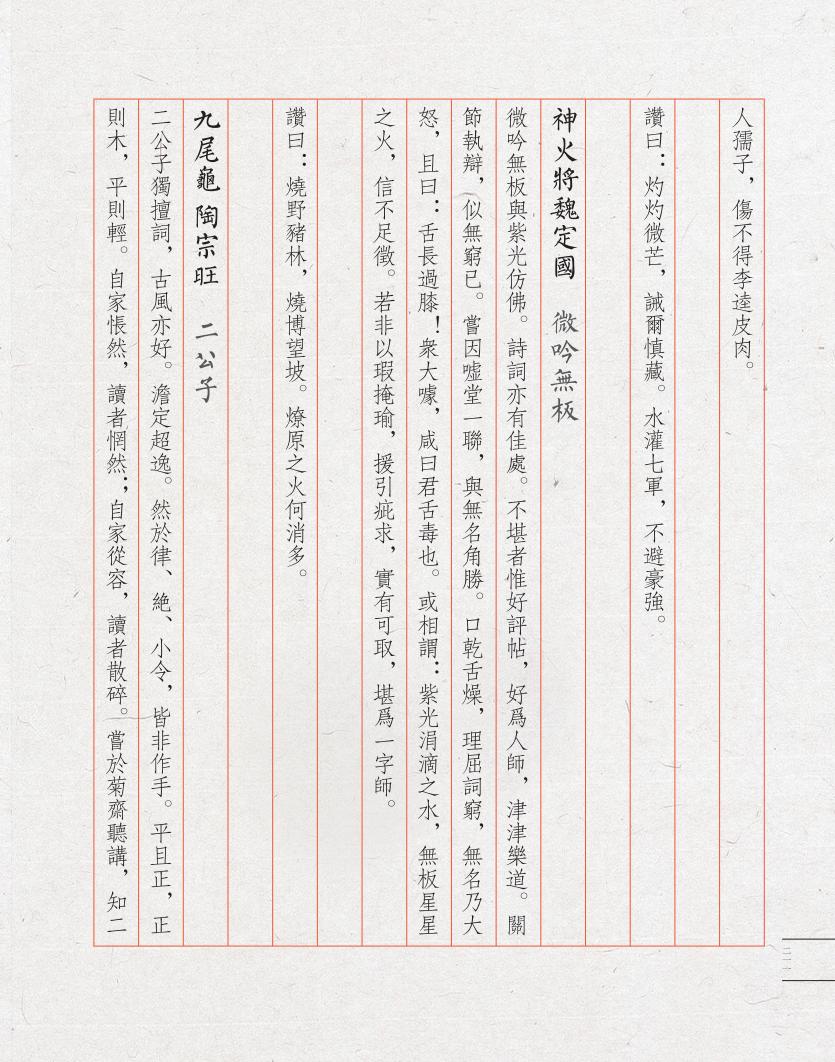 人孺子，傷不得李逵皮肉。
讚曰：灼灼微芒，誡爾慎藏。水灌七軍，不避豪強。
神火將魏定國　微吟無板
微吟無板與紫光仿佛。詩詞亦有佳處。不堪者惟好評帖，好爲人師，津津樂道。關
節執辯，似無窮已。嘗因噓堂一聯，與無名角勝。口乾舌燥，理屈詞窮，無名乃大
怒，且曰：舌長過膝！衆大噱，咸曰君舌毒也。或相謂：紫光涓滴之水，無板星星
之火，信不足徵。若非以瑕掩瑜，援引疵求，實有可取，堪爲一字師。
讚曰：燒野豬林，燒博望坡。燎原之火何消多。
九尾龜陶宗旺　二公子
二公子獨擅詞，古風亦好。澹定超逸。然於律、絶、小令，皆非作手。平且正，正
則木，平則輕。自家悵然，讀者惘然；自家從容，讀者散碎。嘗於菊齋聽講，知二